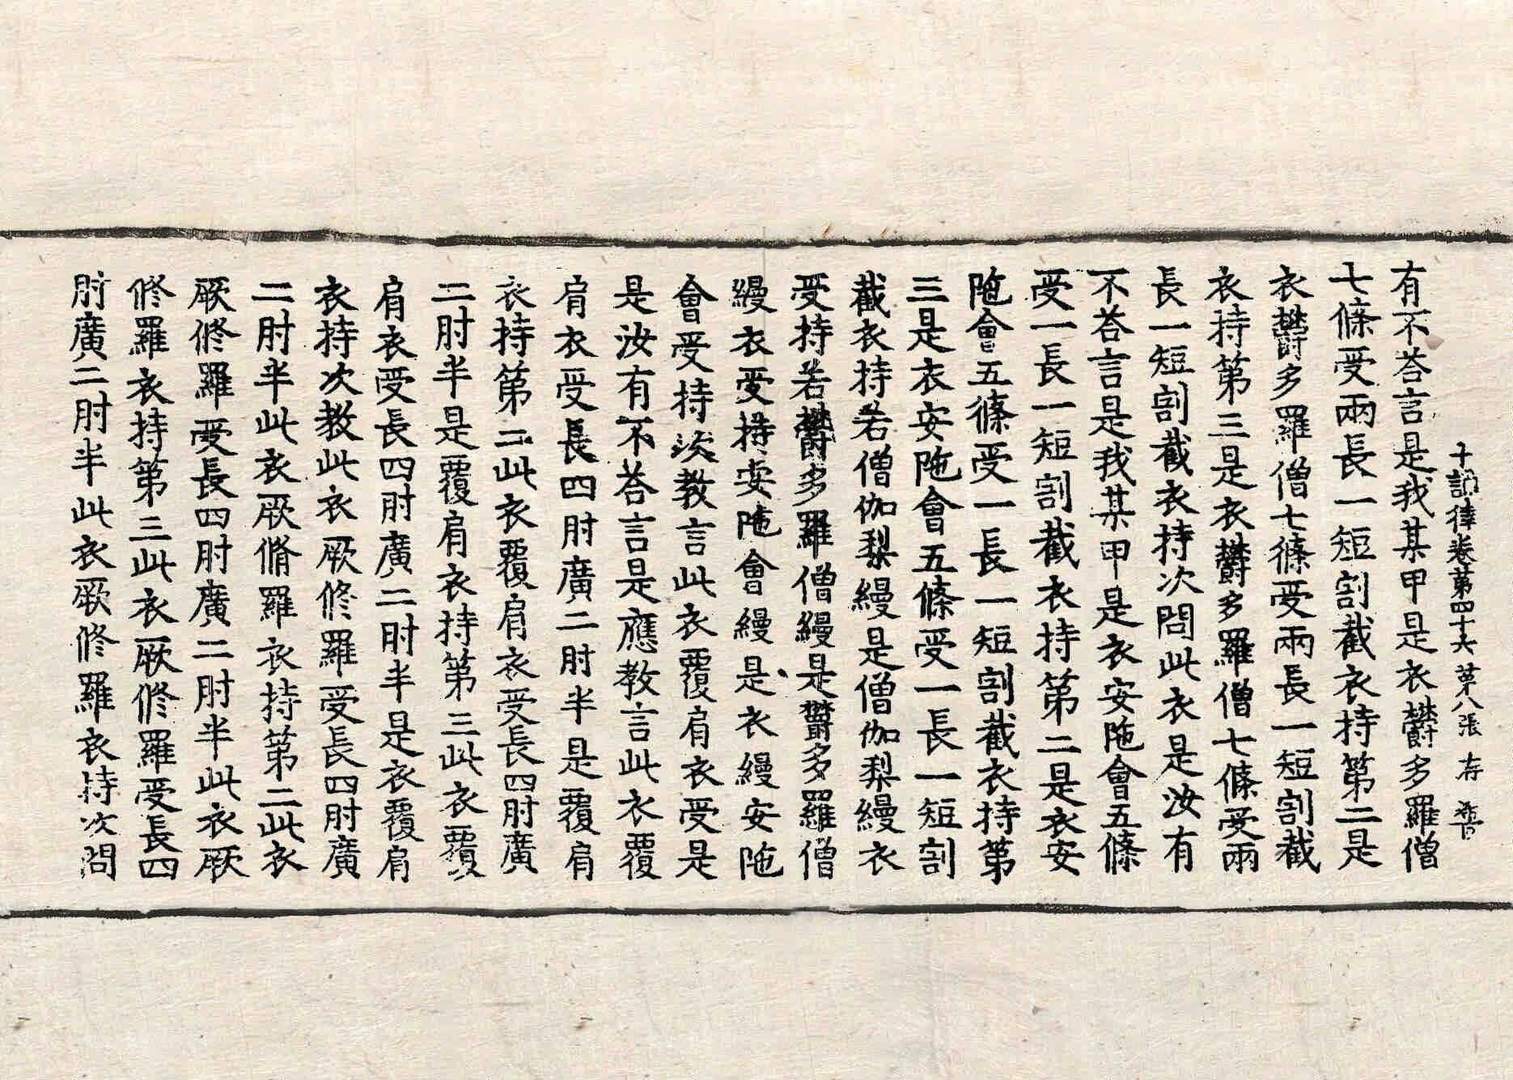 十誦律卷第四十六 第八張 存
有不荅言是我某甲是衣欝多羅僧
七條受兩長一短割截衣持第二是
衣欝多羅僧七條受兩長一短割截
衣持第三是衣欝多羅僧七條受兩
長一短割截衣持次問此衣是汝有
不荅言是我某甲是衣安陁會五條
受一長一短割截衣持第二是衣安
陁會五條受一長一短割截衣持第
三是衣安陁會五條受一長一短割
截衣持若僧伽梨縵是僧伽梨縵衣
受持若欝多羅僧縵是欝多羅僧
縵衣受持安陁會縵是衣縵安陁
會受持次教言此衣覆肩衣受是
是汝有不荅言是應教言此衣覆
肩衣受長四肘廣二肘半是覆肩
衣持第二此衣覆肩衣受長四肘廣
二肘半是覆肩衣持第三此衣覆
肩衣受長四肘廣二肘半是衣覆肩
衣持次教此衣厥修羅受長四肘廣
二肘半此衣厥脩羅衣持第二此衣
厥修羅受長四肘廣二肘半此衣厥
修羅衣持第三此衣厥修羅受長四
肘廣二肘半此衣厥修羅衣持次問